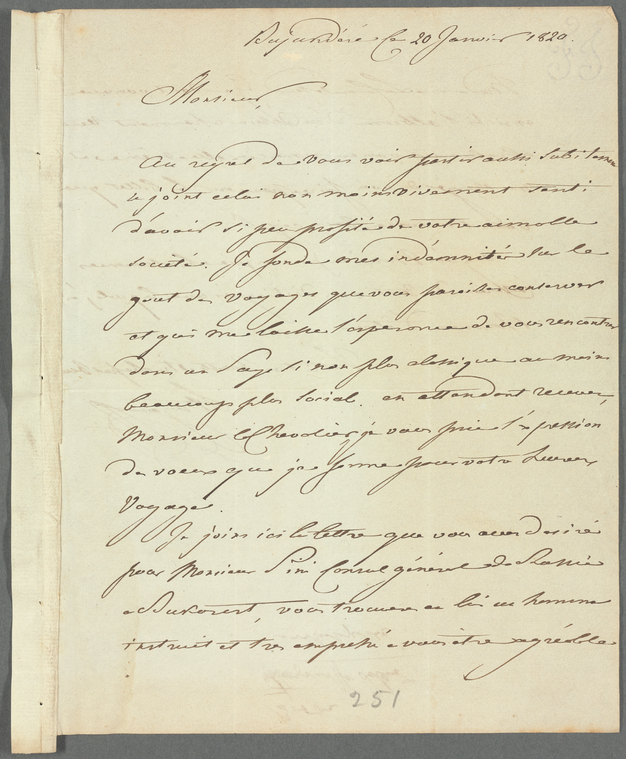 Bujukdéré le 20 Janvier 1820.
Monsieur,
Au regret de vous voir partir aussi subitement
se joint celui non moins vivement senti
d'avoir si peu profité de votre aimable
société. Je fonde mes indémnités sur le
gout des voyages que vous paraissez conserver
et qui me laisse l'esperence de vous rencontrer
dans un Pays si non plus classique au moins
beaucoup plus social. en attendant recevez,
Monsieur le Chevalier, je vous prie l'expression
de voeux que je forme pour votre heureux
Voyage.
Je joins ici la lettre que vous avez desiré
pour Monsieur Pini Consul général de Russie
a Bukorest, vous trouverez en lui un homme
instruit et tres empressé a vous etre agréable
251